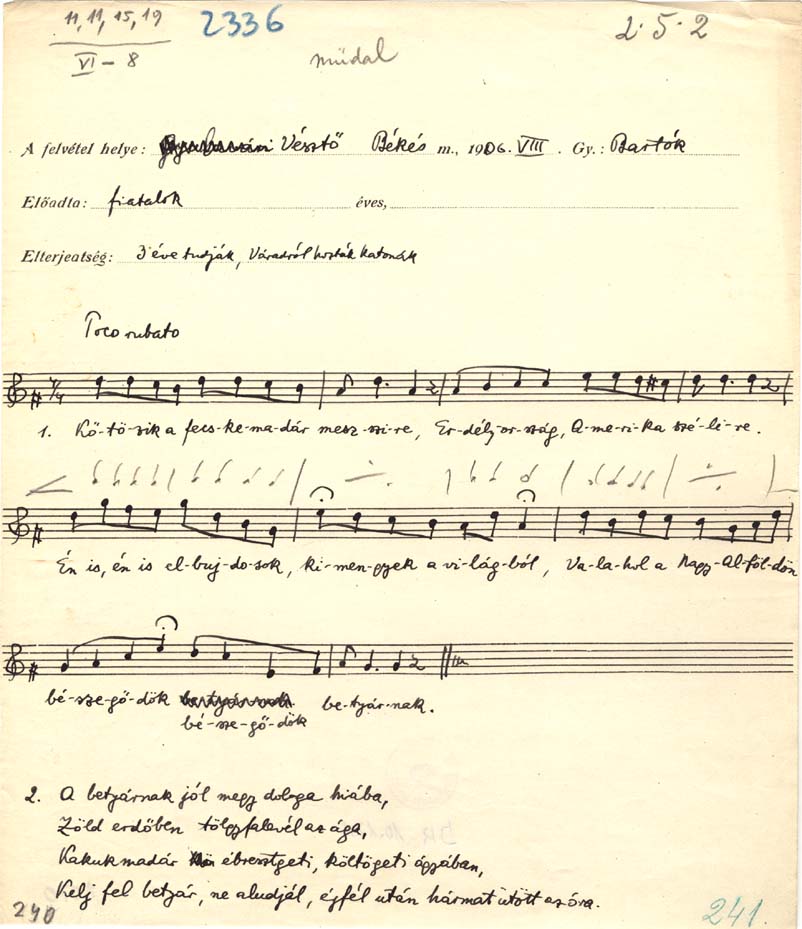 11, 11, 15, 19
VI – 8
2336
műdal
2·5·2
A felvétel helye: Vésztő Békés m., 1906. VIII. Gy.: Bartók
Előadta: fiatalok éves,
Elterjeatség: 3 éve tudják, Váradról hozták katonák
Poco rubato
1. Kő-tö-zik a fecs-ke-ma-dár mesz-szi-re, Er-dély-or-szág, A-me-ri-ka szé-li-re.
Én is, én is el-buj-do-sok, ki-men-gyek a vi-lág-ból, Va-la-hol a Nagy-Al-föl-dön
bé-sze-gő-dök be-tyár-nak.
bé-sze-gő-dök
2. A betyárnak jól megy dolga hiába,
Zöld erdőben tölgyfalevél az ága,
Kakukmadár ébresztgeti, költögeti ágyában,
Kelj fel betyár, ne aludjál, éjfél után hármat ütött az óra.
240
241.